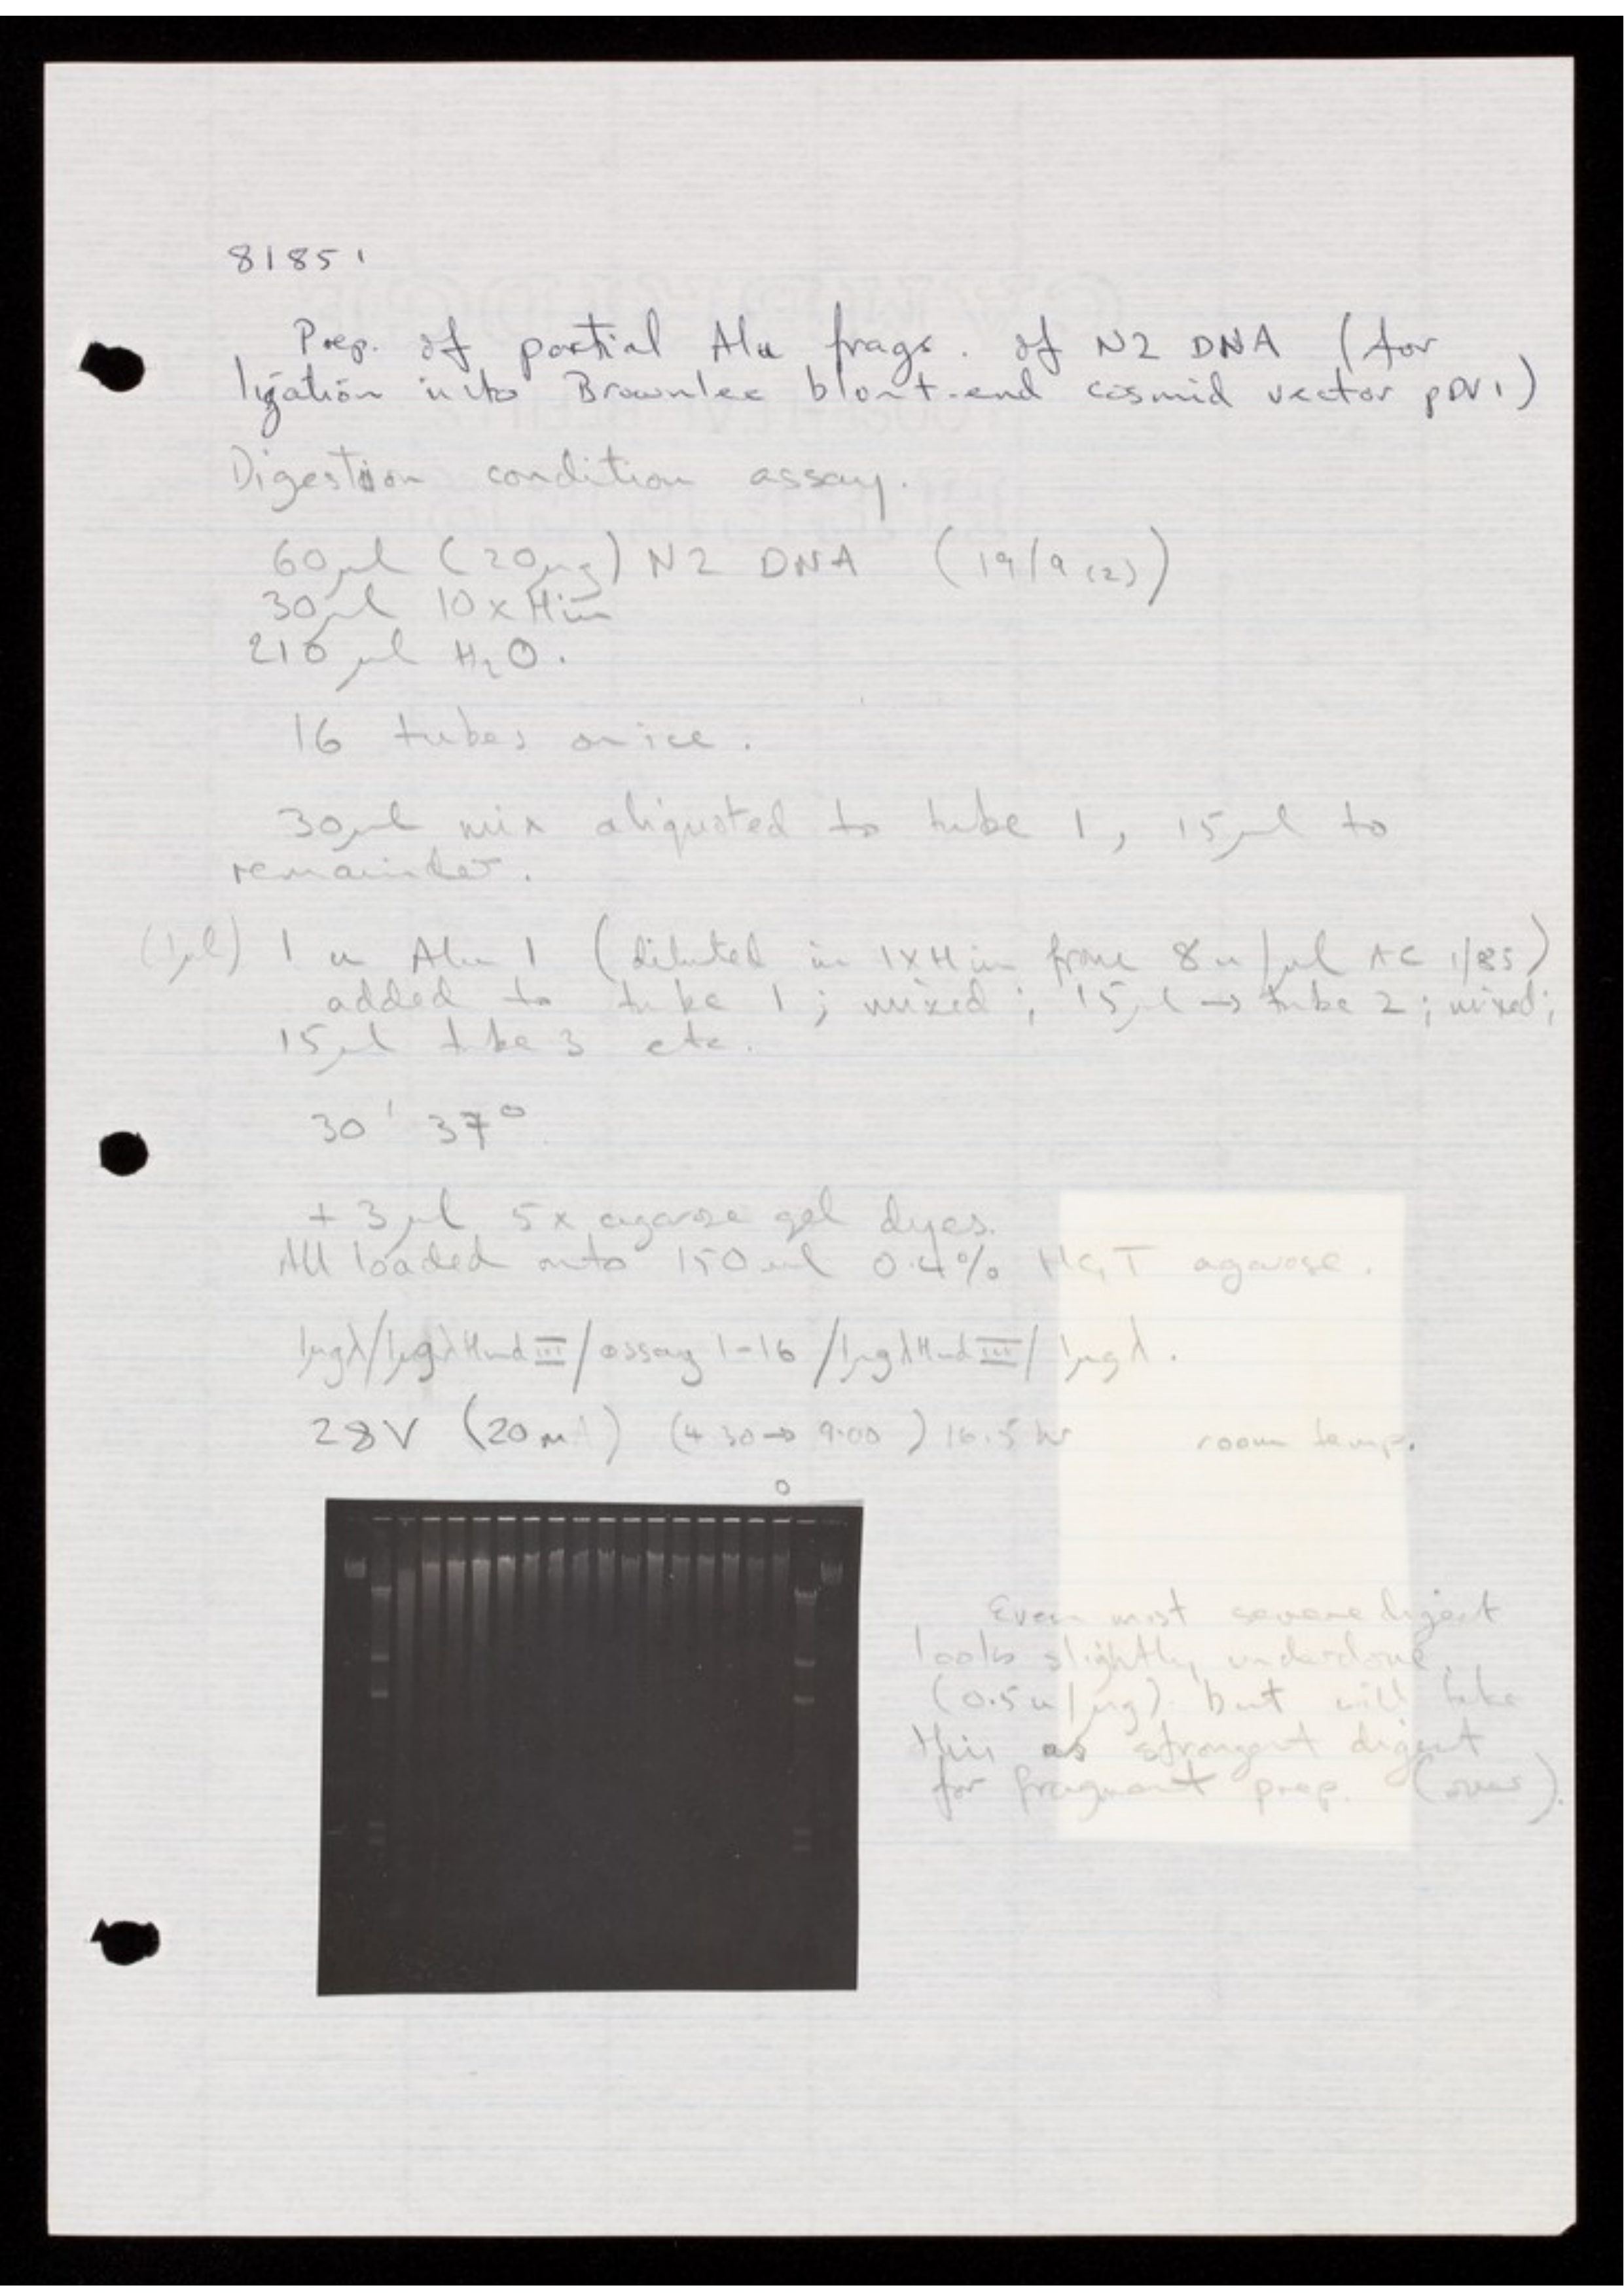 81851
Prep. of partial Alu frags. of N2 DNA (for
ligation into Brownlee blunt-end cosmid vector pDV1)
Digestion condition assay.
60µl (20µg) N2 DNA (19/9 (2))
30µl 10x Hin
210µl H₂O.
16 tubes on ice.
30µl mix aliquoted to tube 1, 15µl to
remainder.
(1µl) 1 u Alu 1 (diluted in 1xHin from 8u/µl AC 1/85)
added to tube 1; mixed; 15µl → tube 2; mixed;
15µl tube 3 etc.
30' 37°
+ 3µl 5x agarose gel dyes.
All loaded onto 150ml 0.4% HGT agarose.
1µgλ/1µgλHind III/assay 1-16/1µgλHind III/1µgλ.
28V (20mA) (4.30→9.00) 16.5 hr room temp.
o
Even most severe digest
looks slightly underdone.
(0.5u/µg) but will take
this as strongest digest
for fragment prep. (over).